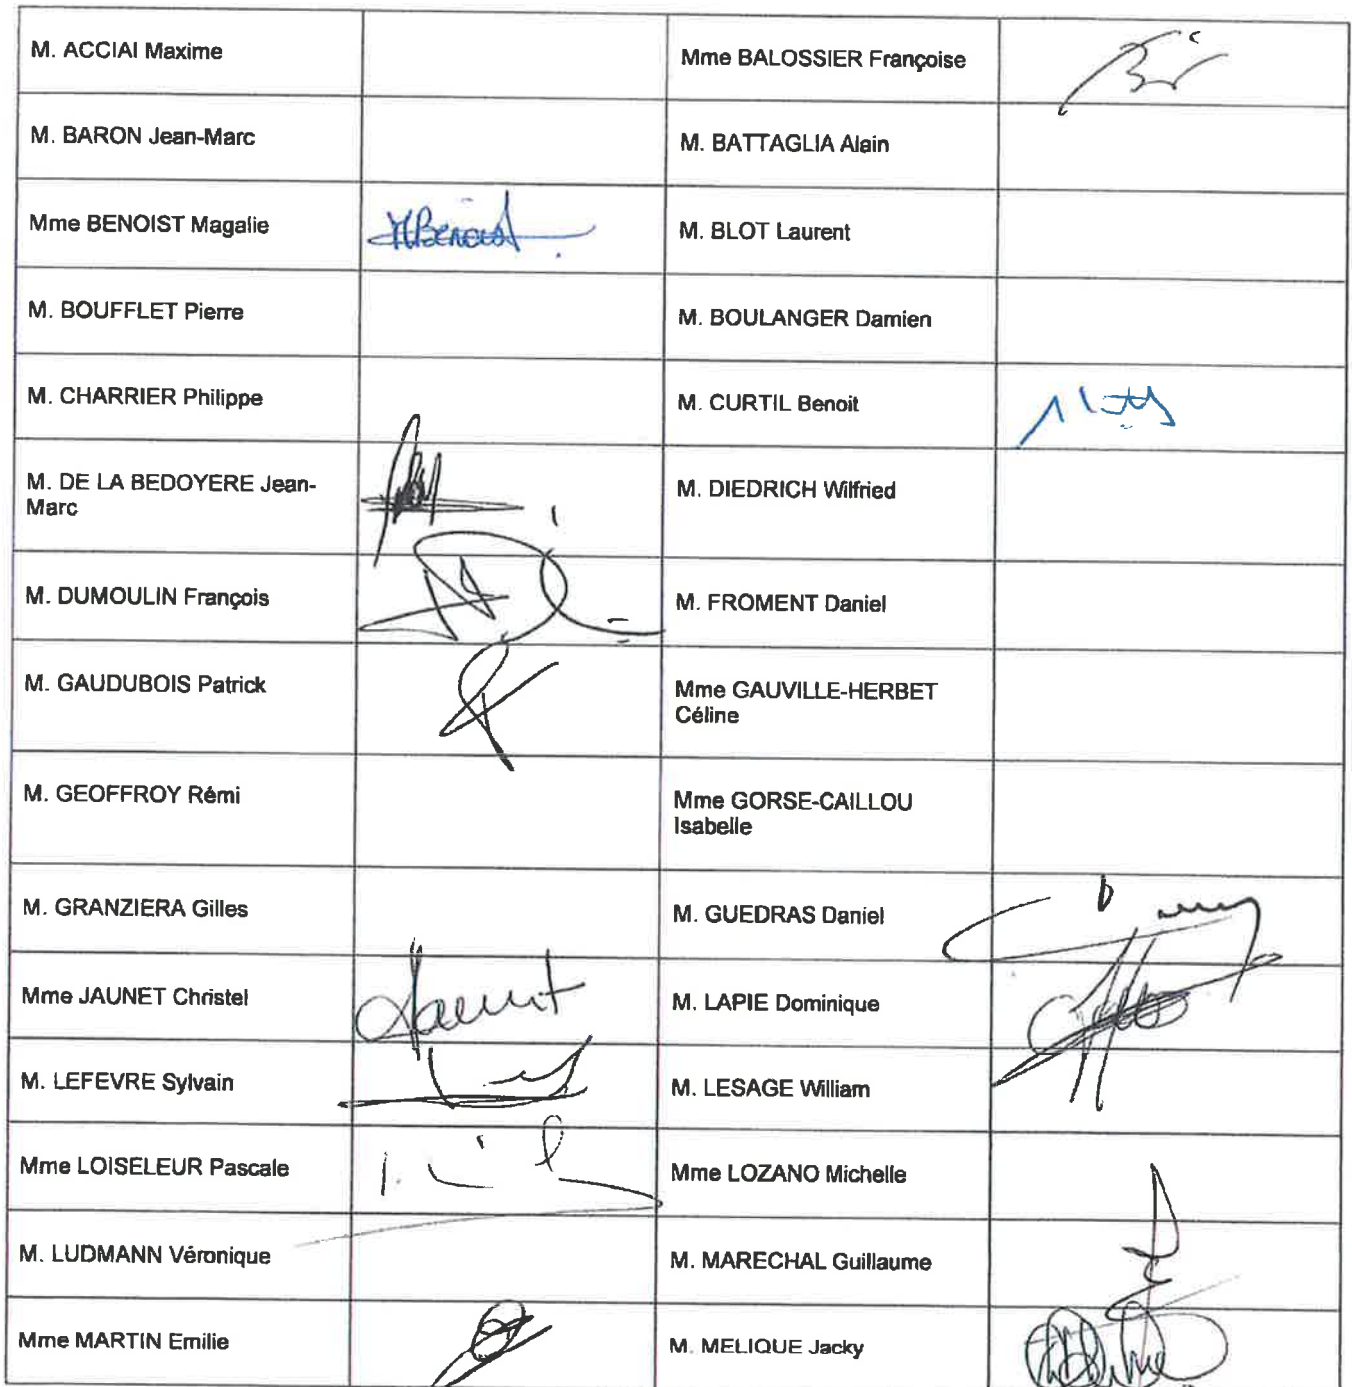 M. ACCIAI Maxime
Mme BALOSSIER Françoise
M. BARON Jean-Marc
M. BATTAGLIA Alain
Mme BENOIST Magalie
MBenoist
M. BLOT Laurent
M. BOUFFLET Pierre
M. BOULANGER Damien
M. CHARRIER Philippe
M. CURTIL Benoit
M. DE LA BEDOYERE Jean-
Marc
M. DIEDRICH Wilfried
M. DUMOULIN François
M. FROMENT Daniel
M. GAUDUBOIS Patrick
Mme GAUVILLE-HERBET
Céline
M. GEOFFROY Rémi
Mme GORSE-CAILLOU
Isabelle
M. GRANZIERA Gilles
M. GUEDRAS Daniel
Mme JAUNET Christel
Jaunet
M. LAPIE Dominique
M. LEFEVRE Sylvain
M. LESAGE William
Mme LOISELEUR Pascale
Mme LOZANO Michelle
M. LUDMANN Véronique
M. MARECHAL Guillaume
Mme MARTIN Emilie
M. MELIQUE Jacky